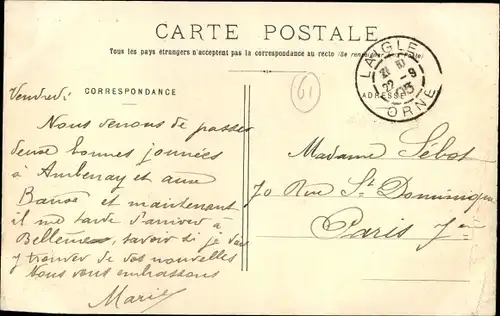 CARTE POSTALE
Tous les pays étrangers n'acceptent pas la correspondance au recto (Se renseigner à la Poste)
CORRESPONDANCE
ADRESSE
LAIGLE
22 - 9
ORNE
61
Vendredi
Nous venons de passer
deux bonnes journées
à Ambenay et aux
Baux et maintenant
il me tarde d'arriver à
Bellême, savoir si je vais
y trouver de vos nouvelles
Nous vous embrassons
Marie
Madame Sebot
70 Rue St Dominique
Paris 7e